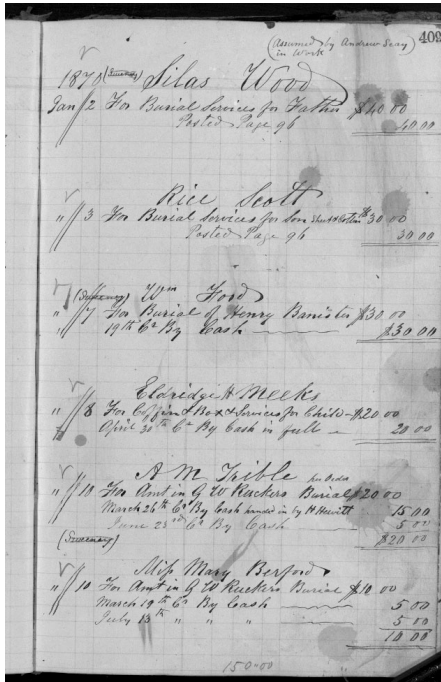 409
(Assumed by Andrew Seay
in Work)
1878 Silas Wood
Jan 2 For Burial Services for Father $40.00
Posted Page 96 40.00
Rice Scott
" 3 For Burial Services for Son $30.00
Posted Page 96 30.00
Wm Ford
" 7 For Burial of Henry Banister $30.00
" 19th Cr By Cash $30.00
Eldridge H Meeks
" 8 For Coffin & Box & Services for Child $20.00
April 30th Cr By Cash in full 20.00
A M Trible
" 10 For Amt in G W Ruckers Burial $20.00
March 26th Cr By Cash handed in by H Hewitt 15.00
June 23rd Cr By Cash 5.00
$20.00
Miss Mary Berford
" 10 For Amt in G W Ruckers Burial $10.00
March 19th Cr By Cash 5.00
July 13th " " " 5.00
10.00
150.00